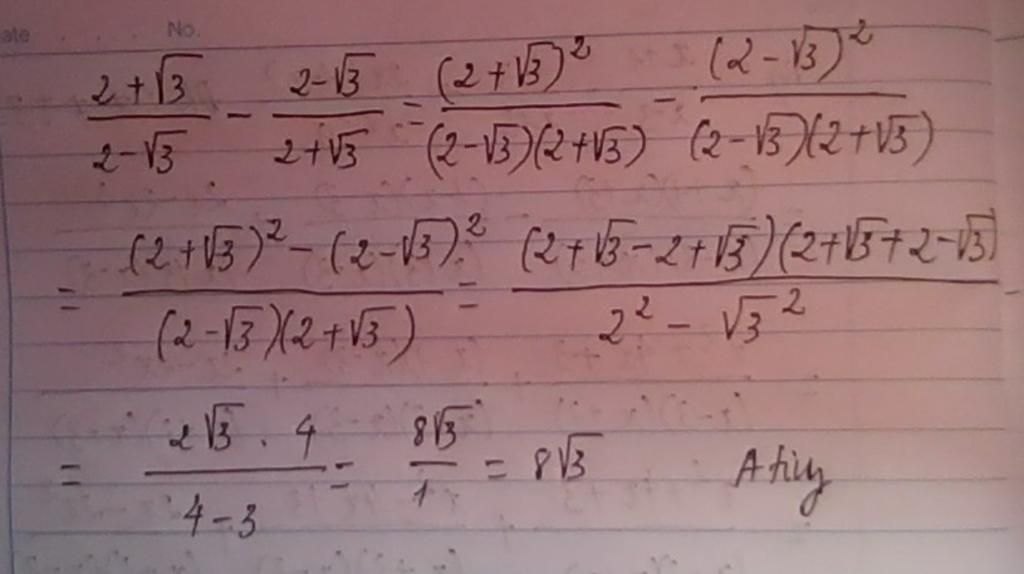 ate No.
\frac{2+\sqrt{3}}{2-\sqrt{3}} - \frac{2-\sqrt{3}}{2+\sqrt{3}} = \frac{(2+\sqrt{3})^2}{(2-\sqrt{3})(2+\sqrt{3})} - \frac{(2-\sqrt{3})^2}{(2-\sqrt{3})(2+\sqrt{3})}
= \frac{(2+\sqrt{3})^2-(2-\sqrt{3})^2}{(2-\sqrt{3})(2+\sqrt{3})} = \frac{(2+\sqrt{3}-2+\sqrt{3})(2+\sqrt{3}+2-\sqrt{3})}{2^2-\sqrt{3}^2}
= \frac{2\sqrt{3} . 4}{4-3} = \frac{8\sqrt{3}}{1} = 8\sqrt{3}